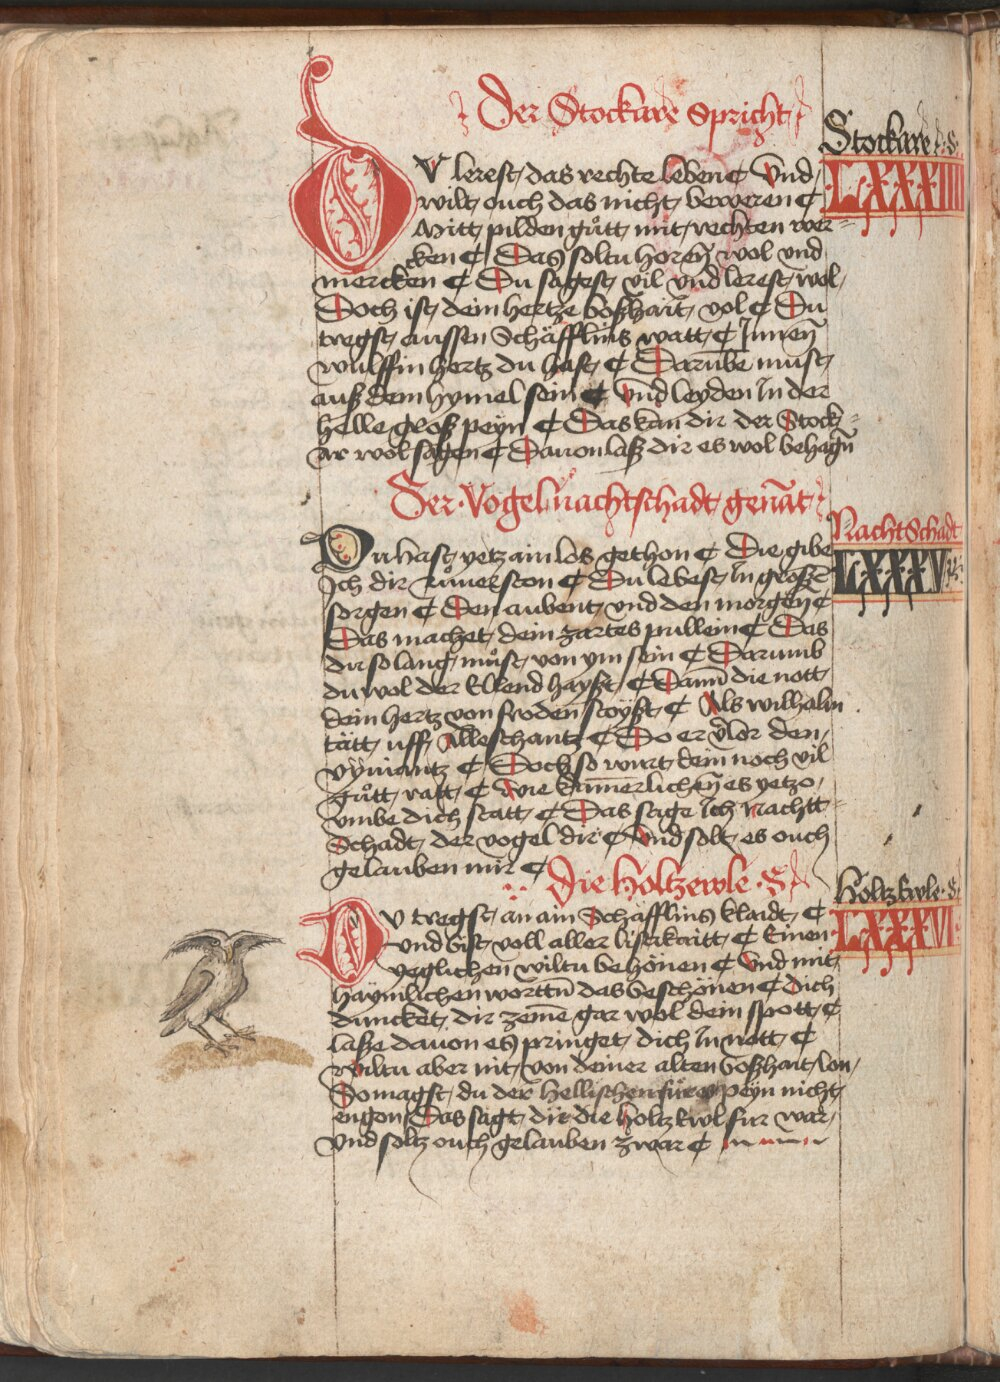 Der Stockare spricht
Stockare .s.
LXXXIIII
DV lerest das rechte leben ¢ Vnd
wilt ouch das nicht beweren ¢
Mitt pilden guͦtt mit rechten wer=
cken ¢ Das soltu horen̄ wol vnd
mercken ¢ Du sagest vil vnd lerest wol
Doch ist dein hertze boßhait vol ¢ Du
tregst aussen Schäfflins watt ¢ Innen̄
wulffin hertz du hast ¢ Darūbe must
auß dem hymel sein ¢ Vnd leyden In der
helle groß peyn ¢ Das kan dir der Stock=
ar wol sagen ¢ Dauon laß dir es wol behagn̄
Der Vogel nachtschadt genāt
Nacht Schadt
LXXXV
Du hast yetz ain los gethon ¢ Die gibe
Ich dir zuͦuerston ¢ Du lebest In großē
sorgen ¢ Den aubent vnd den morgen ¢
Das machet dein zartes prillein ¢ Das
du so lang muͦst von ym sein ¢ Darumb
du wol der Ellend hayßt ¢ Dann̄ die nott
dein hertz von froden stoÿßt ¢ Als wilhalm
tätt uff Alleschantz ¢ Do er v̄lor den
vÿuiantz ¢ Doch so wirt dein noch vil
guͦtt ratt ¢ Wie kūmerlichen̄ es yetzo
vmbe dich statt ¢ Das sage Ich Nachtt
Schadt der vogel dir ¢ Vnd solt es ouch
gelauben mir ¢
Die Holtzewle .S.
Holtz Ewle .s.
LXXXVI
DV tregst an ain Schäfflins klaidt ¢
Vnd bist voll aller listikaitt ¢ Einen
yeglichen wiltu behönen ¢ Vnd mit
haymlichen worttn̄ das beschönen ¢ Dich
duncket dir zeme gar wol dein spott ¢
laße dauon es pringet dich In nott ¢
Wiltu aber nit von deiner alten boßhait lon
So magst du der hellischen fúres peyn nicht
engon Das sagt dir die holtz Ewl fur war
Vnd soltz ouch gelauben zwar ¢